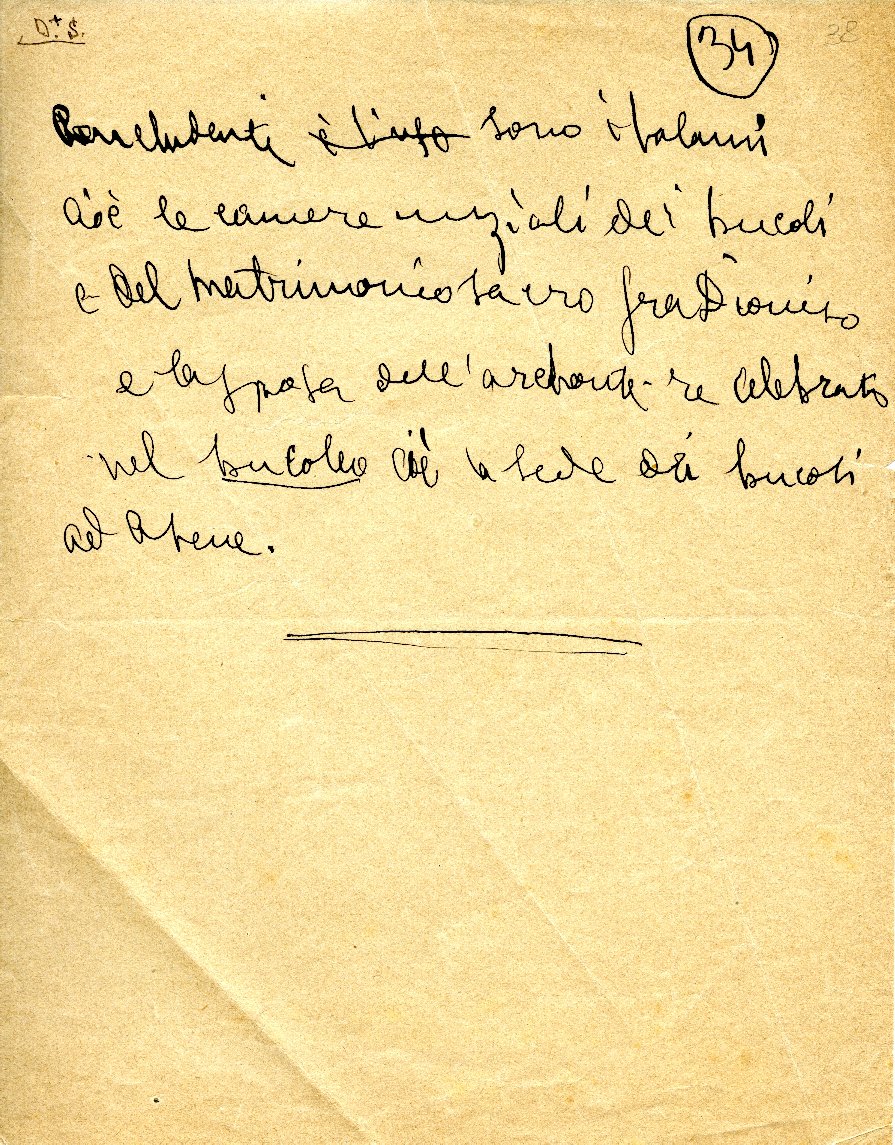 D.+ S.
34
38
Concludenti è l'uso sono i talami
cioè le camere nuziali dei bucoli
e del matrimonio sacro fra Dioniso
e la sposa dell'arconte-re celebrato
nel bucoleo cioè la sede dei bucoli
ad Atene.